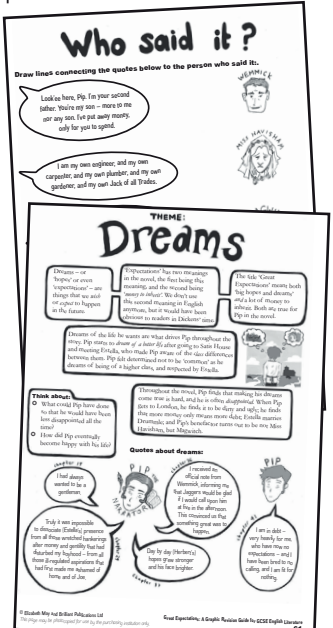 Who said it?
Draw lines connecting the quotes below to the person who said it:
Look'ee here, Pip. I'm your second
father. You're my son – more to me
nor any son. I've put away money,
only for you to spend.
WEMMICK
MISS HAVISHAM
I am my own engineer, and my own
carpenter, and my own plumber, and my own
gardener, and my own Jack of all Trades.
THEME:
Dreams
Dreams – or
'hopes' or even
'expectations' – are
things that we wish
or expect to happen
in the future.
'Expectations' has two meanings
in the novel, the first being this
meaning, and the second being
'money to inherit'. We don't use
this second meaning in English
anymore, but it would have been
obvious to readers in Dickens' time.
The title 'Great
Expectations' means both
'big hopes and dreams'
and a lot of money to
inherit. Both are true for
Pip in the novel.
Dreams of the life he wants are what drives Pip throughout the
story. Pip starts to dream of a better life after going to Satis House
and meeting Estella, who made Pip aware of the class differences
between them. Pip felt determined not to be 'common' as he
dreams of being of a higher class, and respected by Estella.
Think about:
What could Pip have done
so that he would have been
less disappointed all the
time?
How did Pip eventually
become happy with his life?
Throughout the novel, Pip finds that making his dreams
come true is hard, and he is often disappointed. When Pip
gets to London, he finds it to be dirty and ugly; he finds
that more money only means more debt; Estella marries
Drummle; and Pip's benefactor turns out to be not Miss
Havisham, but Magwitch.
Quotes about dreams:
I had always
wanted to be a
gentleman,
PIP
I received an
official note from
Wemmick, informing me
that Jaggers would be glad
if I would call upon him
at five in the afternoon.
This convinced us that
something great was to
happen.
PIP
Truly it was impossible
to dissociate (Estella's) presence
from all those wretched hankerings
after money and gentility that had
disturbed my boyhood – from all
those ill-regulated aspirations that
had first made me ashamed of
home and of Joe.
Day by day (Herbert's)
hopes grew stronger
and his face brighter.
I am in debt –
very heavily for
me, who have now no
expectations – and I
have been bred to no
calling, and I am fit for
nothing.
© Elizabeth May and Brilliant Publications Ltd
This page may be photocopied for use by the purchasing institution only.
Great Expectations: A Graphic Revision Guide for GCSE English Literature